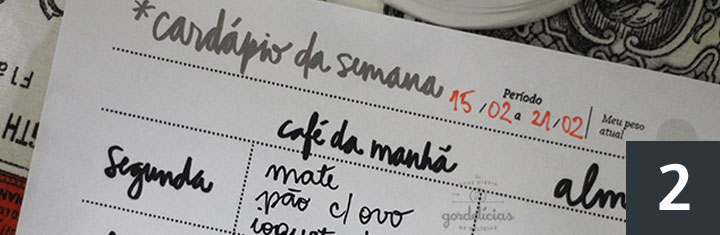 *cardápio da semana
Período
15/02 a 21/02
Meu peso
atual
café da manhã
alm
segunda
mate
pão c/ ovo
iogurte
gordelícias
2